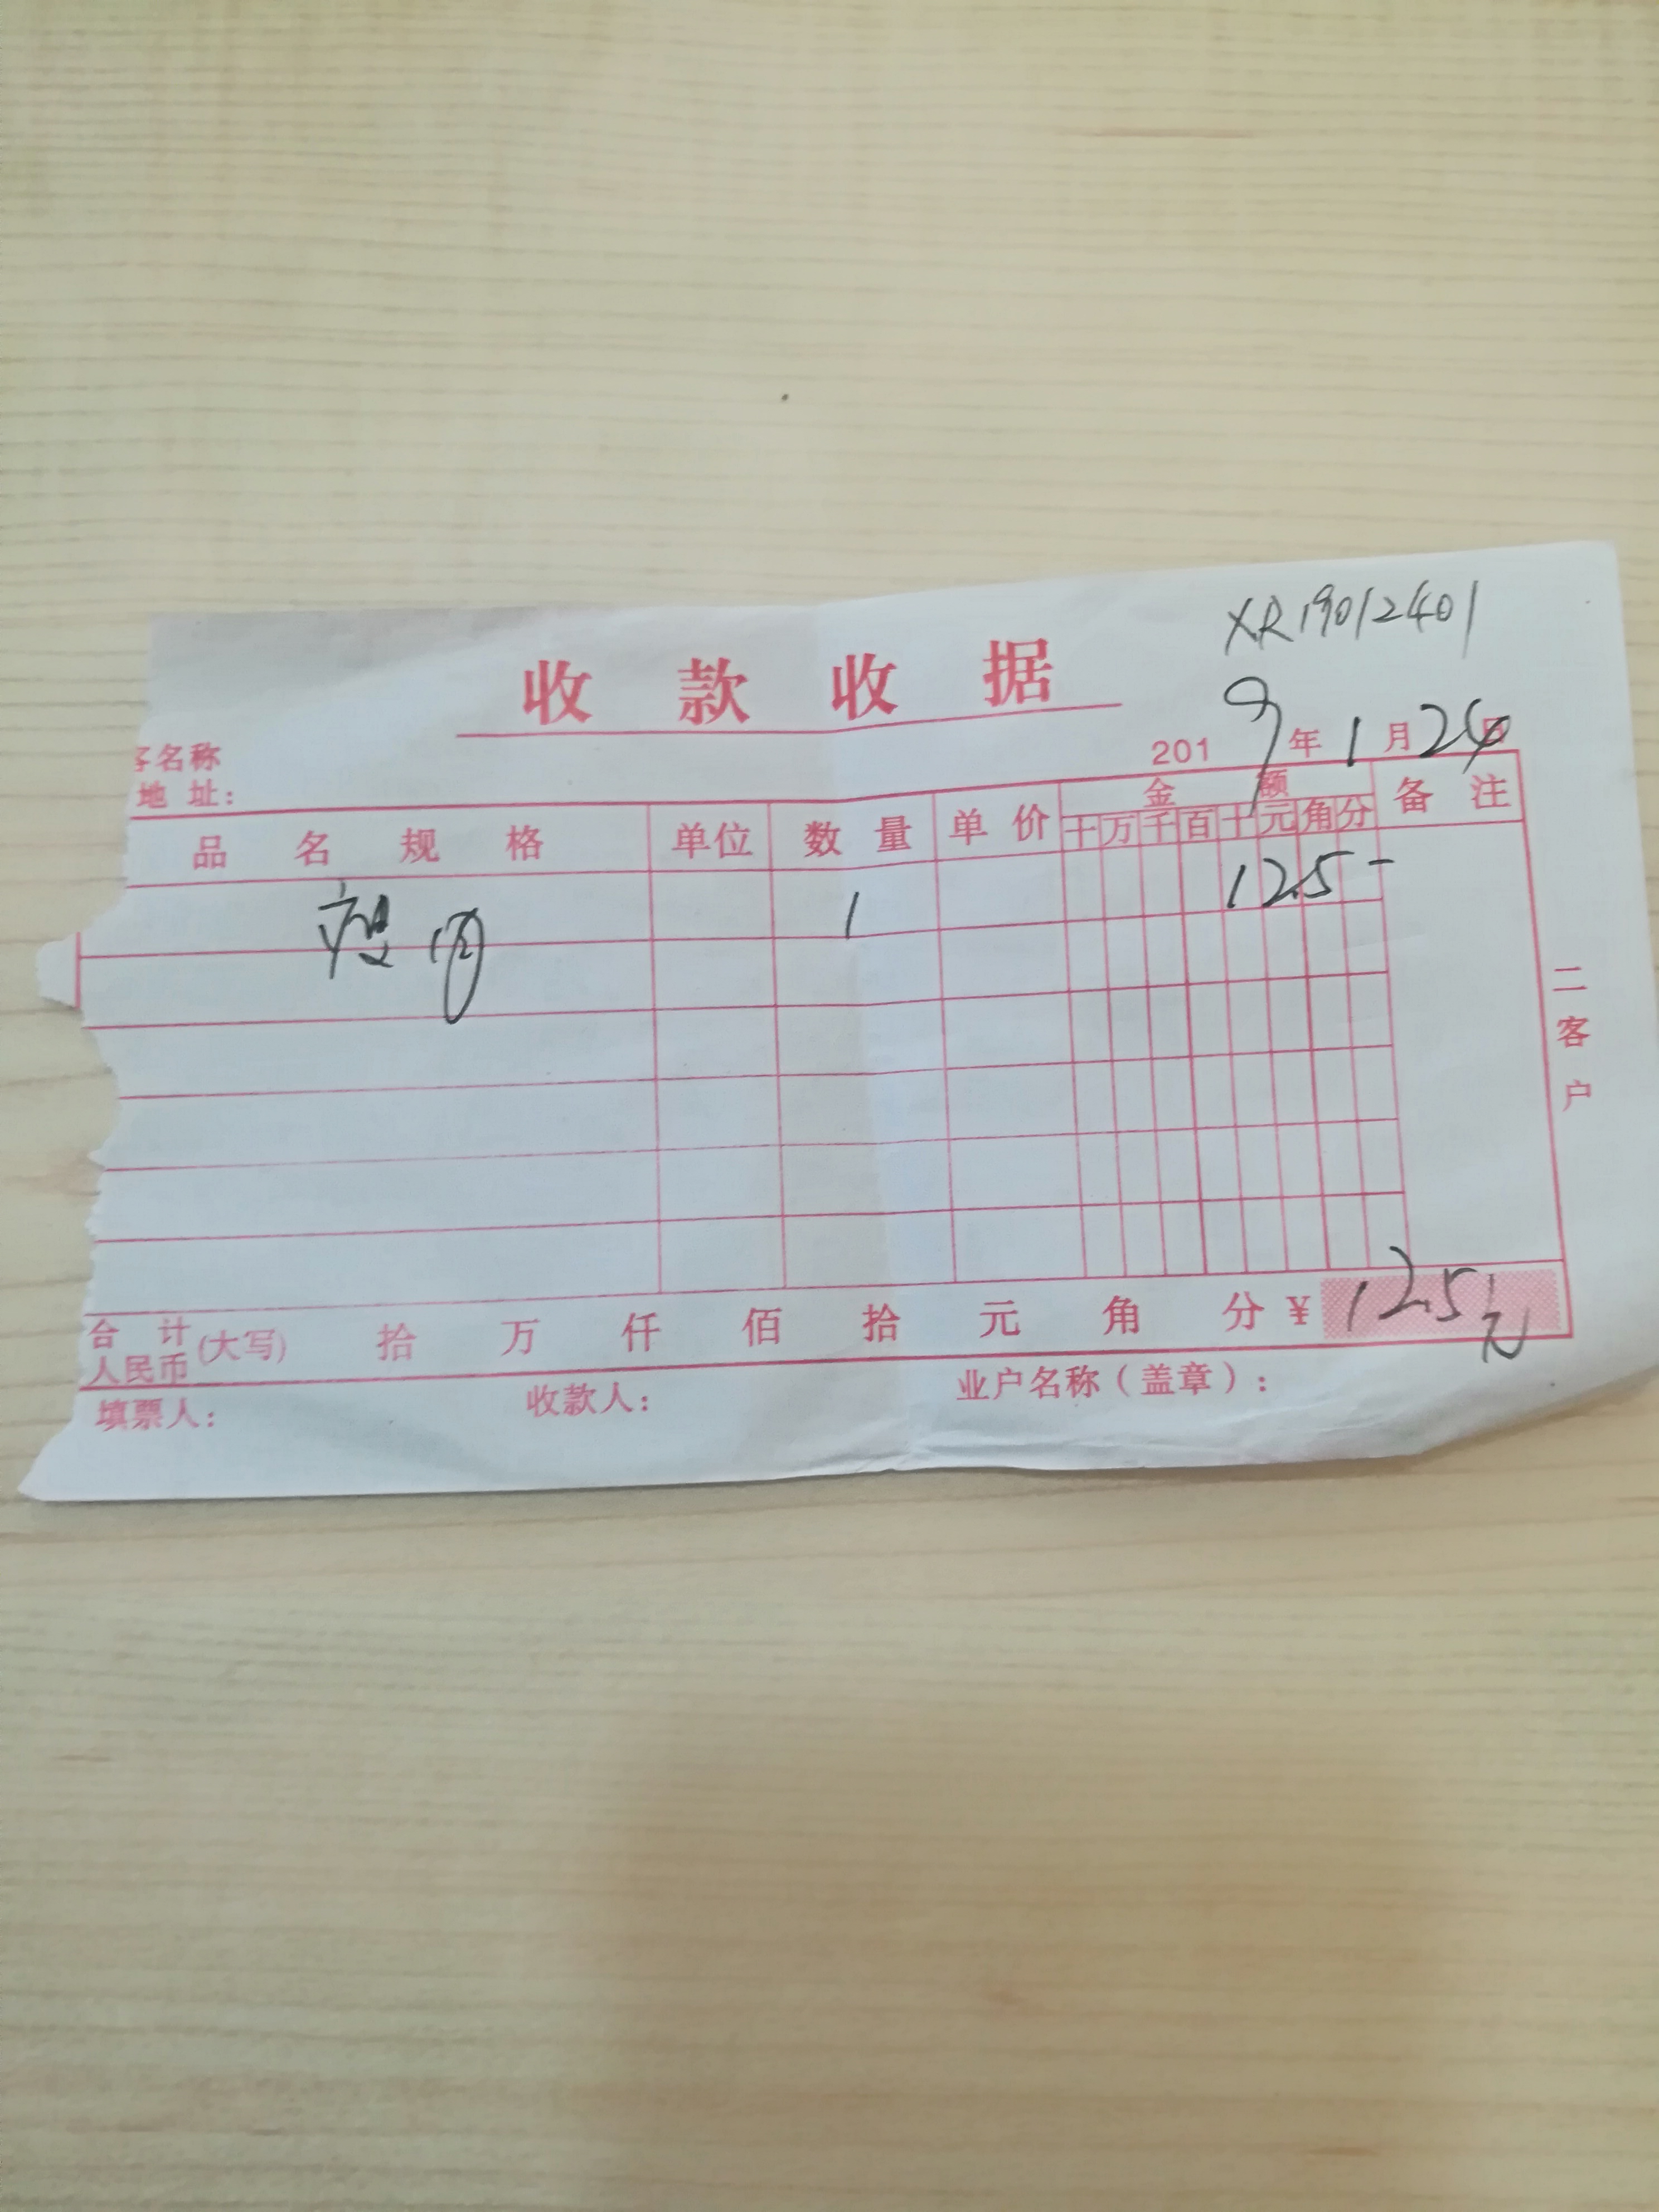 XR19012401
收款收据
2019年1月24日
客名称
地址：
品名规格 单位 数量 单价 金额 备注
十万千百十元角分
1 125-
二客户
合计人民币(大写) 拾 万 仟 佰 拾 元 角 分 ¥ 125元
填票人： 收款人： 业户名称（盖章）：